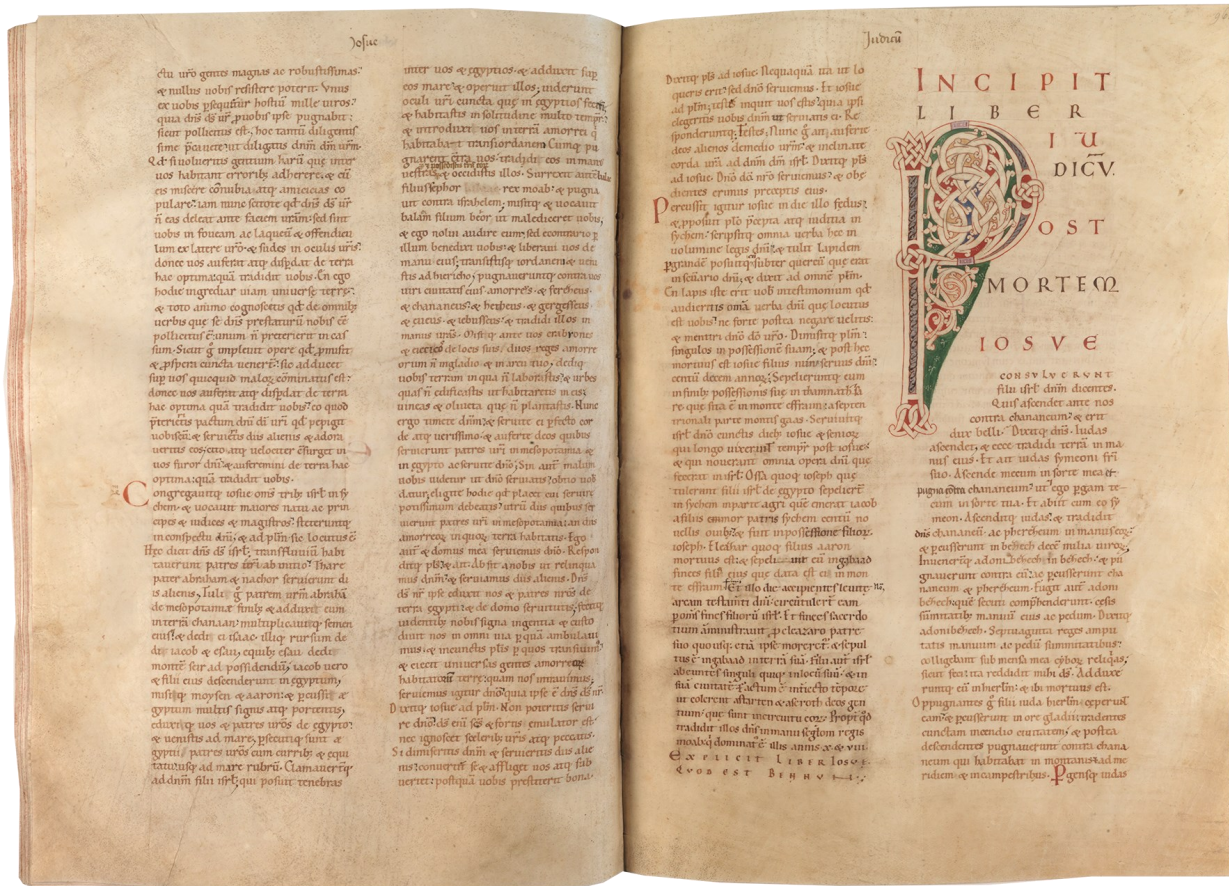 Iosue
ctu uro gentes magnas ac robustissimas
& nullus uobis resistere poterit. Vnus
ex uobis psequetur hostiu mille uiros
quia dns ds ur p uobis ipse pugnabit
sicut pollicitus est. hoc tantu diligentis
sime pcauete ut diligatis dnm dm urm.
Qd si uolueritis gentium haru que inter
uos habitant erroribus adherere. &
eis miscere conubia atq amicicias co
pulare. iam nunc scitote qd dns ds ur
n eas deleat ante faciem uram. sed sint
uobis in foueam ac laqueu & offendicu
lum ex latere uro. & sudes in oculis uris
donec uos auferat atq disperdat de terra
hac optima qua tradidit uobis. En ego
hodie ingrediar uiam uniuerse terre
& toto animo cognoscetis qd de omnib
uerbis que se dns prestaturu nobis ee
pollicitus e. unum n preterierit in cas
sum. Sicut g impleuit opere qd pmisit
& pspera cuncta uenert. sic adducet
sup uos quicquid maloz cominatus est
donec uos auferat atq disperdat de terra
hac optima qua tradidit uobis. eo quod
pterieritis pactum dni di uri qd pepigit
uobiscu & seruieritis diis alienis & adora
ueritis eos. cito atq uelociter csurget in
uos furor dni. & auferemini de terra hac
optima. qua tradidit uobis.
Congregauitq iosue oms trib isrl in sy
chem. & uocauit maiores natu ac prin
cipes & iudices & magistros. steteruntq
in conspectu dni. & ad plm sic locutus e
Hec dicit dns ds isrl. trans fluuiu habi
tauerunt patres uri ab initio. thare
pater abraham & nachor. seruierunt di
is alienis. tuli g patrem urm abraha
de mesopotamie finib. & adduxi eum
in terra chanaan. multiplicauitq semen
eius. & dedi ei isaac. illiq rursum de
di iacob & esau. equib esau dedi
monte seir ad possidendu. iacob uero
& filii eius descenderunt in egyptum.
misitq moysen & aaron. & percussi e
gyptum multis signis atq portentis.
eduxitq uos & patres uros de egypto.
& uenistis ad mare. psecutiq sunt e
gyptii patres uros cum currib & equi
tatu usq ad mare rubru. Clamauertq
ad dnm filii isrl. qui posuit tenebras
inter uos & egyptios. & adduxit sup
eos mare & operuit illos. uiderunt
oculi uri cuncta que in egypto fecerim
& habitastis in solitudine multo tempr
& introduxi uos in terra amorrei q
habitabat trans iordanen. Cumq pu
gnarent ctra uos. tradidi eos in man
uestras & occidistis illos. Surrexit aute balac
filius sephor rex moab. & pugna
uit contra israhelem. misitq & uocauit
balam filium beor ut malediceret uobis.
& ego nolui audire eum. sed econtrario p
illum benedixi uobis. & liberaui uos de
manu eius. transistisq iordanen. & ueni
stis ad hiericho. pugnaueruntq contra uos
uiri ciuitatis eius. amorreus. & ferezeus.
& chananeus. & hetheus. & gergesseus.
& eueus. & iebusseus. & tradidi illos in
manus uras. Misitq ante uos crabrones.
& eieci eos de locis suis. duos reges amorre
orum n in gladio & in arcu tuo. dediq
uobis terram in qua n laborastis. & urbes
quas n edificastis ut habitaretis in eis.
uineas & oliueta que n plantastis. Nunc
ergo timete dnm. & seruite ei pfecto cor
de atq uerissimo. & auferte deos quibus
seruierunt patres uri in mesopotamia &
in egypto ac seruite dno. Sin aut malum
uobis uidetur ut dno seruiatis. obtio uob
datur. eligite hodie qd placet cui seruire
potissimum debeatis. utru diis quibus ser
uierunt patres uri in mesopotamia. an diis
amorreoz in quoz terra habitatis. Ego
aut & domus mea seruiemus dno. Respon
ditq pls & ait. Absit a nobis ut relinqua
mus dnm. & seruiamus diis alienis. Dns
ds nr ipse eduxit nos & patres nros de
terra egypti. & de domo seruitutis. fecitq
uidentib nobis signa ingentia & custo
diuit nos in omni uia p qua ambulaui
mus. & in cunctis plis p quos transiuim
& eiecit uniuersas gentes amorreu
habitatore terre. quam nos intrauimus.
seruiemus igitur dno quia ipse e dns ds nr
Dixitq iosue ad plm. Non poteritis serui
re dno. ds eni scs & fortis. emulator est
nec ignoscet scelerib uris atq peccatis.
Si dimiseritis dnm & seruieritis diis alie
nis. conuertet se & affliget uos atq sub
uertet. postqua uobis prestiterit bona.
Iudicu
Dixitq pls ad iosue. Nequaqua ita ut lo
queris erit sed dno seruiemus. Et iosue
ad plm. testes inquit uos estis. quia ipsi
elegeritis uobis dnm ut seruiatis ei. Re
sponderuntq. Testes. Nunc g ait. auferte
deos alienos de medio urm. & inclinate
corda ura ad dnm dm isrl. Dixitq pls
ad iosue. Dno do nro seruiemus. & obe
dientes erimus preceptis eius.
Percussit igitur iosue in die illo fedus.
& pposuit plo pcepta atq iuditia in
sychem. scripsitq omnia uerba hec in
uolumine legis dni. & tulit lapidem
pgrande posuitq subter quercu que erat
in sctuario dni. & dixit ad omne plm.
En lapis iste erit uob in testimonium qd
audieritis omia uerba dni que locutus
est uobis. ne forte postea negare uelitis.
& mentiri dno do uro. Dimisitq plm
singulos in possessione suam. & post hec
mortuus est iosue filius nun seruus dni.
centu decem annoz. Sepelieruntq eum
in finib possessionis sue in thamnath sa
re que sita e in monte effraim. a septen
trionali parte montis gaas. Seruiuitq
isrl dno cunctis dieb iosue & senioz
qui longo uixerunt tempr post iosue.
& qui nouerant omnia opera dni que
fecerat in isrl. Ossa quoq ioseph que
tulerant filii isrl de egypto sepeliert
in sychem in parte agri que emerat iacob
a filiis emmor patris sychem centu no
uellis ouib. & fuit in possessione filioz
ioseph. Eleazar quoq filius aaron
mortuus est. & sepelierunt eu in gabaad
finees filii eius que data est ei in mon
te effraim. Et illo die accipientes leuite
arcam testamti dni circuitulert eam
p oms fines filioru isrl. Et finees sacerdo
tium aministrauit. p eleazaro patre
suo quousq. etia ipse morerert. & sepul
tus e in gabaad in terra sua. filii aut isrl
abeuntes singuli quiq in locu suu. & in
sua ciuitate. Factum e in iecto tepore
ut colerent astarten & astaroth deos gen
tium. que sunt in circuitu eoz. Propt qd
tradidit illos dns in manu eglom regis
moab. qi dominat e illis annis x & viii.
EXPLICIT LIBER IOSUE
QUOD EST BENNUN
INCIPIT
LIBER
IU
DICV.
POST
MORTEM
IOSVE
CONSVLVERVNT
filii isrl dnm dicentes.
Quis ascendet ante nos
contra chananeum. & erit
dux belli. Dixitq dns. Iudas
ascendet. & ecce tradidi terra in ma
nus eius. Et ait iudas symeoni fri
suo. Ascende mecum in sorte mea &
pugna cotra chananeum. ut & ego pgam te
cum in sorte tua. Et abiit cum eo sy
meon. Ascenditq iudas. & tradidit
dns chananeu. ac pherezeum in manus eoz.
& percusserunt in bezech dece milia uiroz.
Inueneruntq adonibezech in bezech. & pu
gnauerunt contra eu. ac percusserunt cha
naneum & pherezeum. Fugit aut adoni
bezech. que secuti comphenderunt. cesis
sumitatib manuu eius ac pedum. Dixitq
adonibezech. Septuaginta reges ampu
tatis manuum ac pedu summitatibus
colligebant sub mensa mea cyboz reliqas.
sicut feci ita reddidit mihi ds. Adduxe
runtq eu in hierlm. & ibi mortuus est.
Oppugnantes g filii iuda hierlm. ceperunt
eam. & percusserunt in ore gladii. tradentes
cunctam incendio ciuitatem. & postea
descendentes pugnauerunt contra chana
neum qui habitabat in montanis. & ad me
ridiem & in campestribus. Pgensq iudas